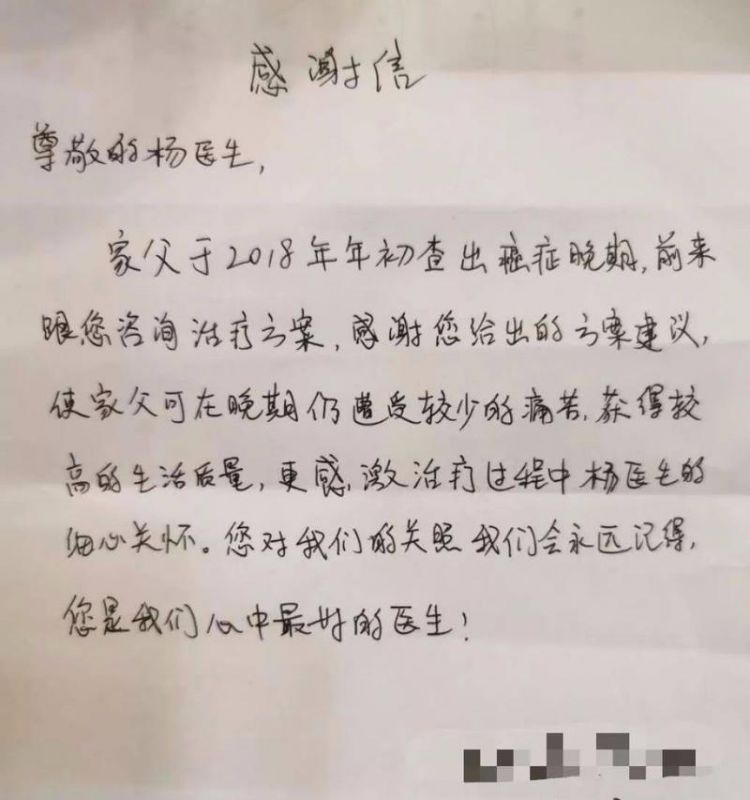 感谢信
尊敬的杨医生,
家父于2018年年初查出癌症晚期,前来
跟您咨询治疗方案,感谢您给出的方案建议,
使家父可在晚期仍遭受较少的痛苦,获得较
高的生活质量,更感激治疗过程中杨医生的
细心关怀。您对我们的关照我们会永远记得,
您是我们心中最好的医生!